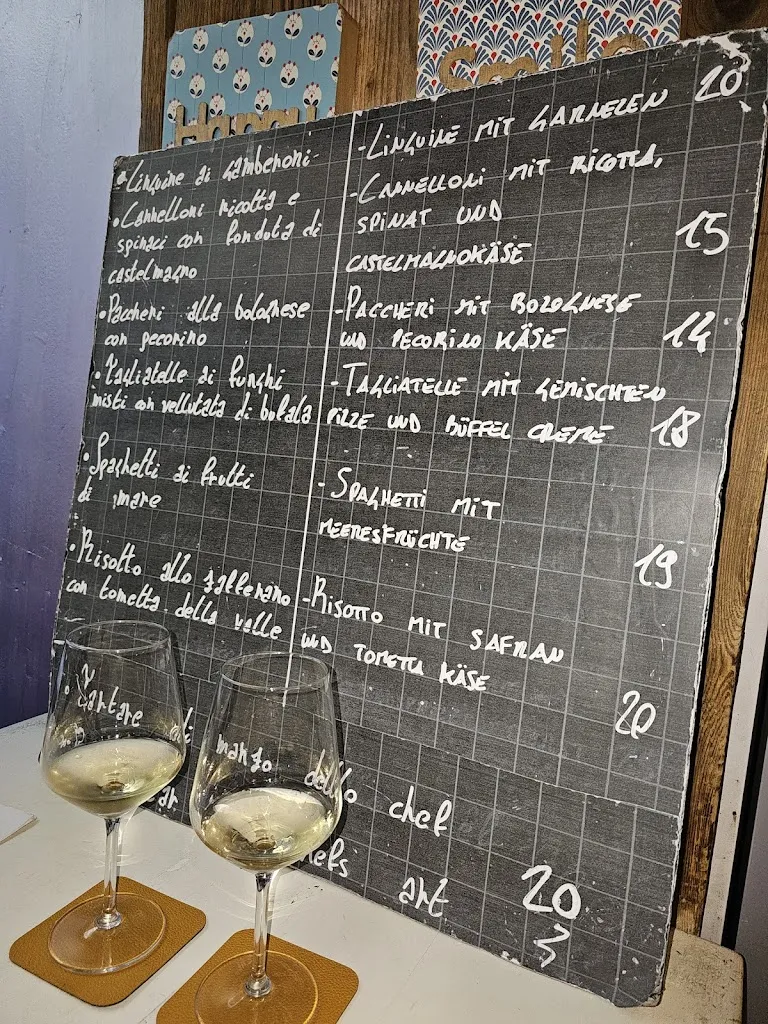 Happy
Smile
• Linguine ai gamberoni
• Cannelloni ricotta e
spinaci con fonduta di
castelmagno
• Paccheri alla bolognese
con pecorino
• Tagliatelle ai funghi
misti con vellutata di bufala
• Spaghetti ai frutti
di mare
• Risotto allo zafferano
con tometta della valle
- LINGUINE MIT GARNELEN 20
- CANNELLONI MIT RICOTTA,
SPINAT UND
CASTELMAGNOKÄSE 15
- PACCHERI MIT BOLOGNESE
UND PECORINO KÄSE 14
- TAGLIATELLE MIT GEMISCHTEN
PILZE UND BÜFFEL CREME 18
- SPAGHETTI MIT
MEERESFRÜCHTE 19
- RISOTTO MIT SAFRAN
UND TOMETTA KÄSE 20
• Tartare di manzo dello chef
art 20
3